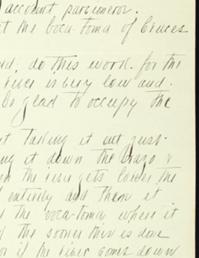 account parsimeror.
t the boca-toma of Cruces
nd, do this work. for the
river is very low and.
be glad to occupy the
t taking it out just
ng it down the Brazo &
n the river gets lower the
d entirely and then it
s the boca-toma where it
d the sooner this is done
or if the river comes down